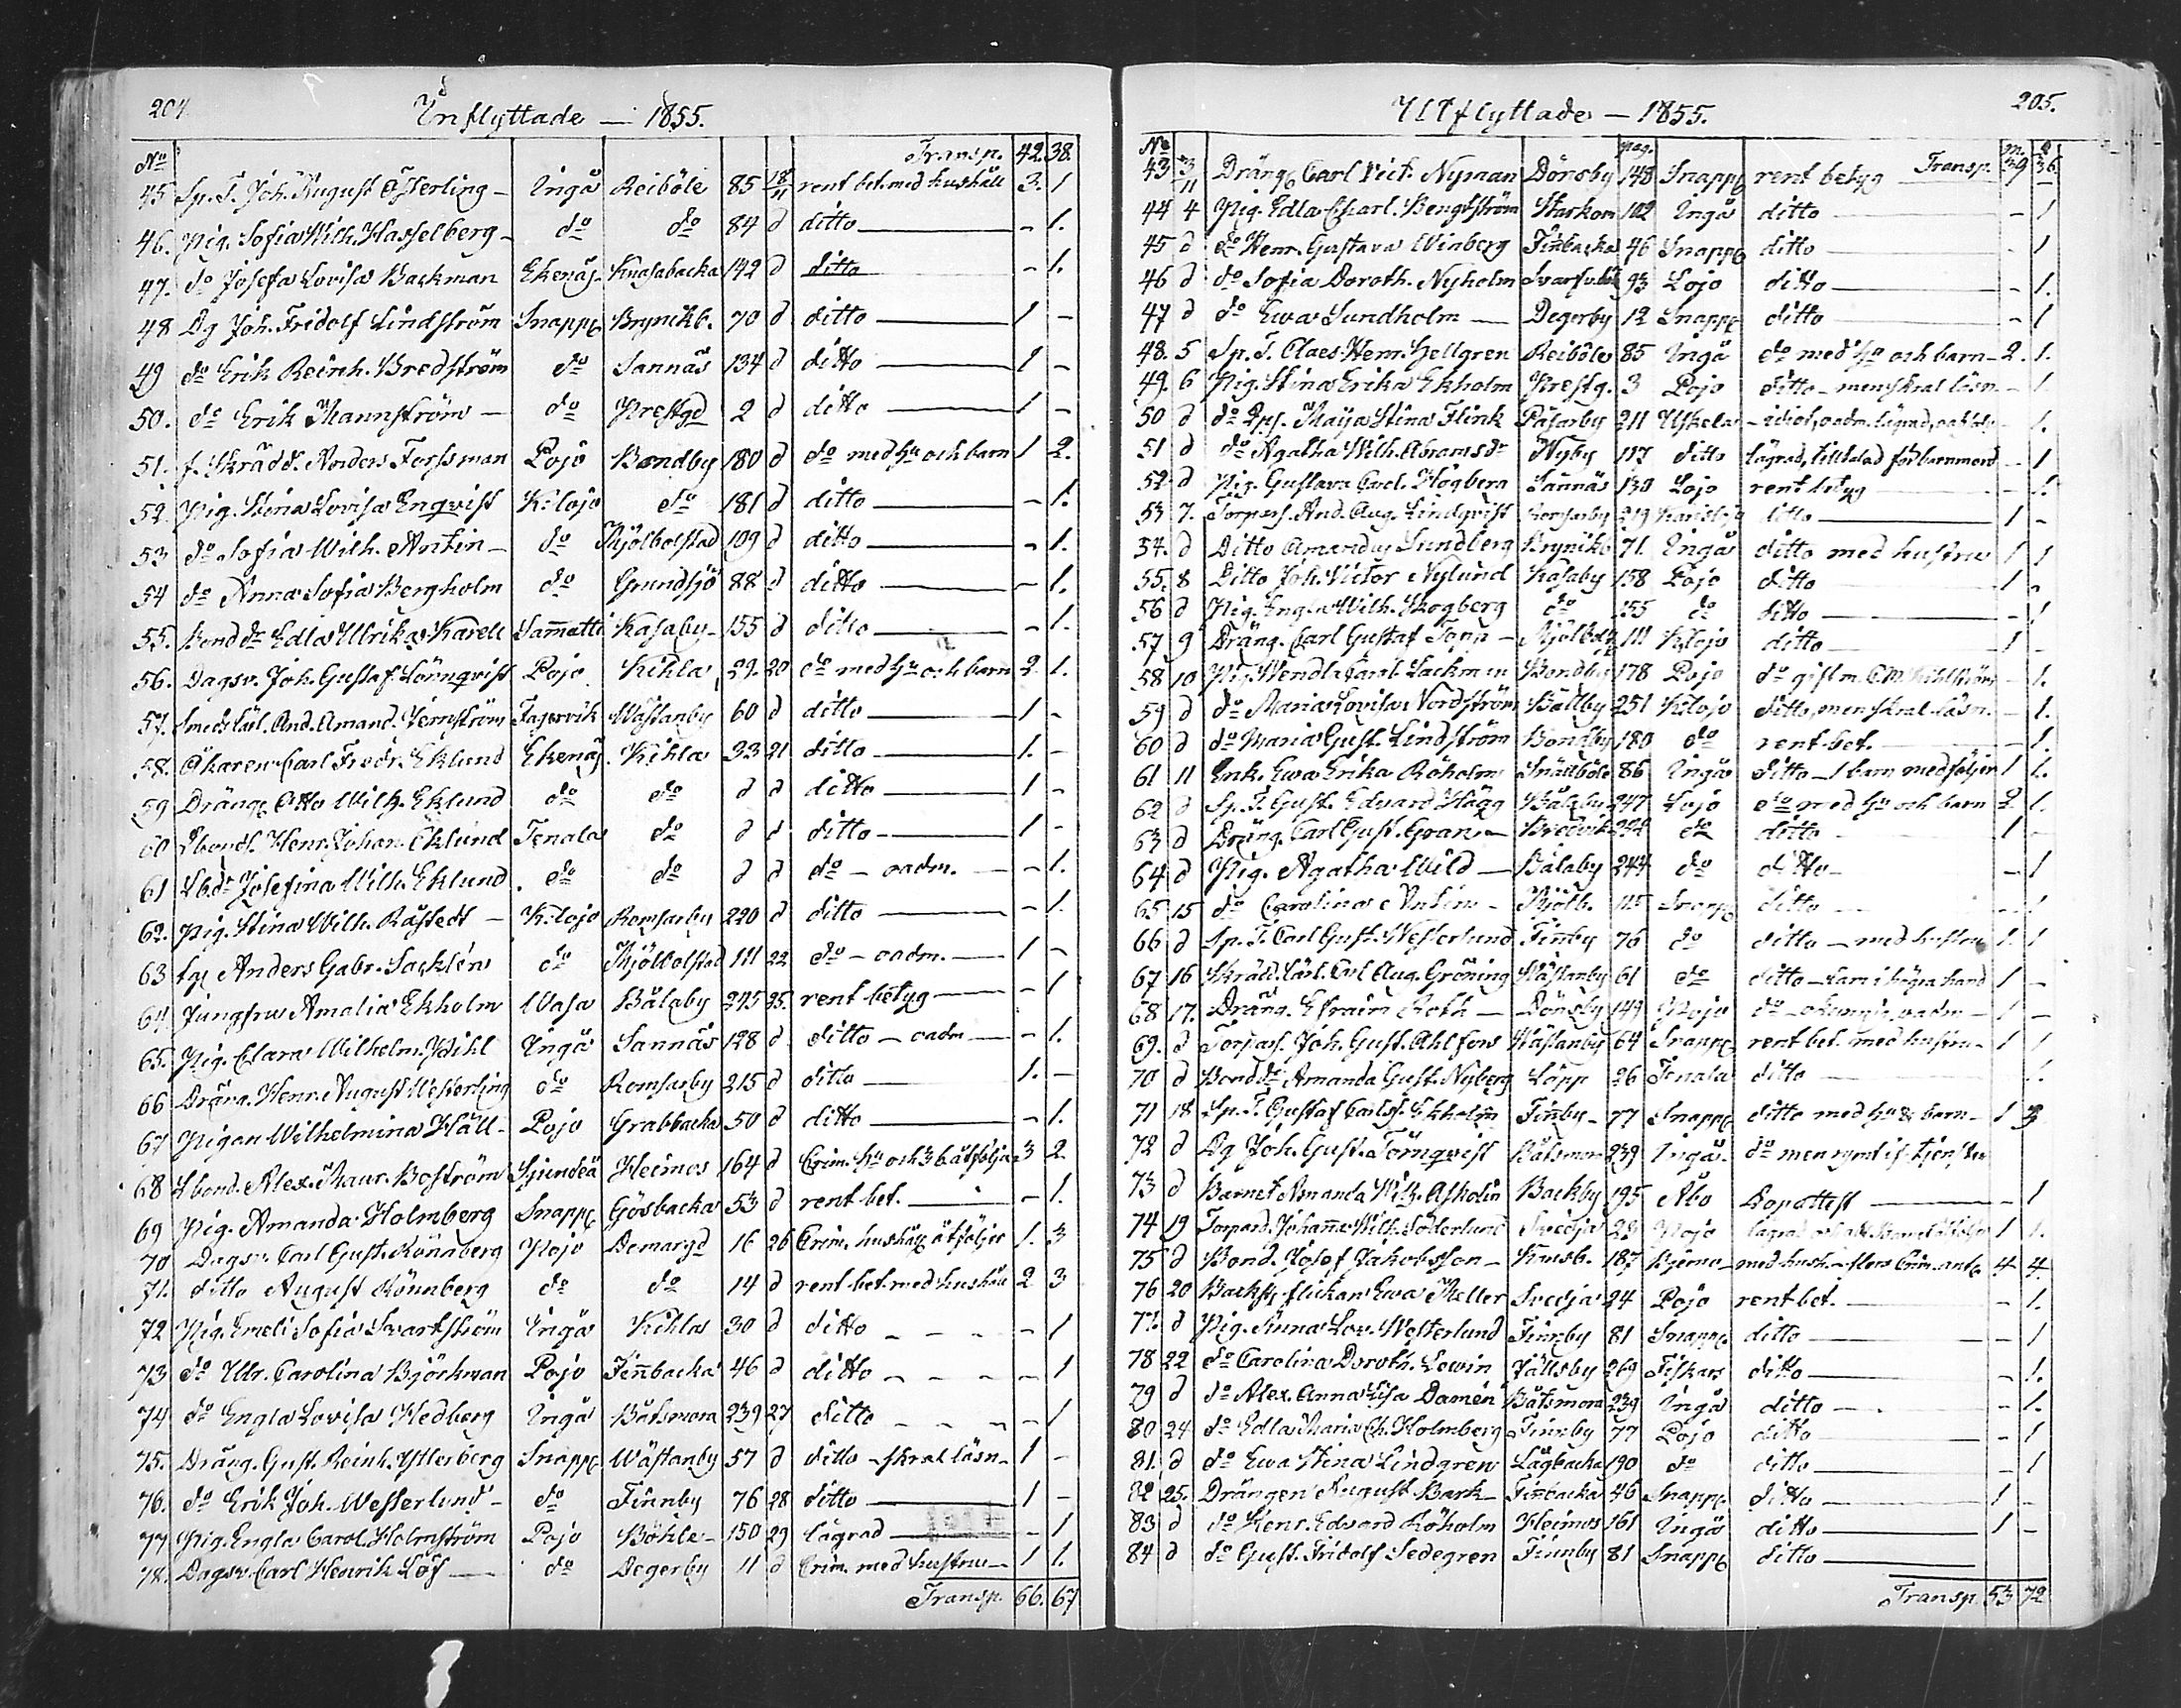 204.
Inflyttade — 1855.
No Transp. 42. 38.
45. Sp. T. Joh. August Österling — Ingå Reiböle 85 18/11 rent bet. med hushåll 3. 1
46. Pig. Sofia Wilh. Hasselberg — do do 84 d ditto — - 1.
47. do Josefa Lovisa Backman Ekenäs Knasabacka 142 d ditto — - 1.
48 Dg Joh. Fridolf Lindström Snapp Brynikb. 70 d ditto — 1 -
49 do Erik Reinh. Bredström do Sannäs 134 d ditto — 1 -
50. do Erik Mannström — do Prestgd 2 d ditto — 1 -
51. f. Skrädd. Anders Forssman Pojo Bondby 180 d do med hu och barn 1 2.
52. Pig. Stina Lovisa Enqvist K:lojo do 181 d ditto — - 1.
53 do Sofia Wilh. Antin — do Thjölbolstad 109 d ditto — - 1.
54 do Anna Sofia Bergholm do Grundsjö 88 d ditto — - 1.
55. Bond dr Edla Ulrika Karell Sammatti Kasaby 155 d ditto — - 1.
56. Dagsv. Joh. Gustaf Lönnqvist Pojo Kihla 29. 20 do med hu och barn 2. 1.
57. Smeds lärl. And. Amand. Jernström Fagervik Wästanby 60 d ditto — 1 -
58. Åkaren Carl Fredr. Eklund Ekenäs Kihla 33 21 ditto — 1. -
59 Dräng Otto Wilh. Eklund do do d d ditto — 1 -
60 Henr. Johan Eklund Tenala do d d ditto — 1 -
61 Josefina Wilh. Eklund do do d d do — oadm. — - 1.
62. Pig. Stina Wilh. Råstedt — K:lojo Romsarby 220 d ditto — - 1.
63 Anders Gabr. Sacklén do Thjölbolstad 111 22 do — oadm. — 1 -
64. Jungfru Amalia Ekholm Wasa Bålaby 245 25. rent betyg — - 1
65. Pig. Clara Wilhelm. Pihl Ingå Sannäs 128 d ditto — oadm — - 1.
66 Dräng. Henr. August Westerling do Romsarby 215 d ditto — 1. -
67 Pigan Wilhelmina Häll — Pojo Grabbacka 50 d ditto — - 1.
68 Alex. Maur. Boström Sjundeå Heimos 164 d Crim. hu och 3 b åtfölja 3 2
69 Pig. Amanda Holmberg Snapp Gösbacka 53 d rent bet. — - 1.
70 Dagsv. Carl Gust. Rönnberg Pojo Domargd 16 26 Crim. hushåll åtföljer 1. 3
71. ditto August Rönnberg do do 14 d rent bet. med hushåll 2 3
72 Pig. Emeli Sofia Svartström Ingå Kihla 30 d ditto - 1
73 do Ulr. Carolina Björkman Pojo Finnbacka 46 d ditto - 1
74 do Engla Lovisa Hedberg Ingå Båtsmora 239 27 ditto - 1
75. Dräng. Gust. Reinh. Ytterberg Snapp Wästanby 57 d ditto - skral läsn. 1 -
76. do Erik Joh. Westerlund — do Finnby 76 28 ditto — 1 -
77 Pig. Engla Carol. Holmström Pojo Böhle — 150 29 lägrad — - 1
78. Dagsv. Carl Henrik Löf — do Degerby 11 d Crim. med hustru — 1 1.
Transp. 66. 67
205.
Utflyttade — 1855.
No pag. m. q
43 3/11 Dräng Carl Vict. Nyman Dönsby 148 Snapp rent betyg — Transp. 39 36.
44 4 Pig. Edla Charl. Bengtström Starkom 102 Ingå ditto — - 1
45 d do Henr. Gustava Winberg Finnbacka 46 Snapp ditto — - 1
46 d do Sofia Doroth. Nyholm 93 Lojo ditto — - 1.
47 d do Ewa Sundholm — Degerby 12 Snapp ditto — - 1
48. 5 Sp. T. Claes Henr. Hellgren Reiböle 85 Ingå do med hu och barn — 2. 1.
49. 6 Pig. Stina Erika Ekholm Prestg. 3 Pojo ditto — men skral läsn. - 1
50 d do Maija Stina Flink Påsarby 211 Uskela - idiot, oadm. lägrad, - 1.
51 d do Agatha Wilh. Abramsdr Nyby 117 ditto lägrad, tilltalad för barnmord - 1
52. d Pig. Gustava Carol. Högberg Sannäs 130 Lojo rent betyg — - 1.
53 7. Torpars. And. Aug. Lindqvist Romsarby 219 Karislojo ditto — 1 -
54. d Ditto Amandus Sundberg Bryniko 71. Ingå ditto med hustru 1 1
55. 8 Ditto Joh. Victor Nylund Kasaby 158 Pojo ditto — 1 -
56 d Pig. Engla Wilh. Skogberg do 155 do ditto — - 1
57 9 Dräng. Carl Gustaf Topp — 111 K:lojo ditto — 1 -
58 10 Pig. Wendla Carol. Backman Bondby 178 Pojo do gift m. - 1.
59 d do Maria Lovisa Nordström Bällby 251 K:lojo ditto, men skral läsn. - 1.
60 d do Maria Gust. Lindström Bondby 180 do rent bet. — - 1.
61 11 Enk. Ewa Erika Röholm Snällböle 86 Ingå ditto — 1 barn medföljer 1 1.
62 d Sp. T. Gust. Edvard Hägg Bålaby 247 Lojo do med hu och barn 2. 1.
63 d Dräng. Carl Gust. Gran — Bredvik do ditto 1 -
64 d Pig. Agatha Wild — Bålaby 244 do ditto - 1
65 15 do Carolina Antin — Thjölb. 115 Snapp ditto — - 1
66 d Sp. T. Carl Gust. Westerlund Finnby 76 do ditto — med hustru 1. 1
67 16 Skrädd. lärl. Carl Aug. Gröning Wästanby 61 do ditto — i högra hand 1 -
68 17. Dräng. Efraim Roth — Dönsby 149 Pojo do — oadm — 1 -
69. d Torpars. Joh. Gust. Ahlfors Wästanby 64 Snapp rent bet. med hustru — 1 1
70 d Bond dr Amanda Gust. Nyberg Löpp 26 Tenala ditto — 1.
71 18 Sp. T. Gustaf Carlss. Ekholm Finnby — 77 Snapp ditto med hu & barn — 1 3
72 d Dg Joh. Gust. Törnqvist Båtsmora 239 Ingå. do men rymt
73 d Barnet Amanda Wilh. Asholm Backby 195 Åbo Kopattest — - 1
74 19 Torpard. Johanna Wilh. Söderlund Svedja 23 Pojo 1 1.
75 d Bond. Josef Jakobsson — Knasb. 187 Bjerno — med hush. — flera Crim. ant. 4 4.
76 20 flickan Ewa Meller Svedja 24 Pojo rent bet. — - 1.
77. d Pig. Anna Lov. Westerlund Finnby 81 Snapp ditto — - 1
78 22 do Carolina Doroth. Lewin Fällsby 269 Fiskars ditto — - 1.
79 d do Alex. Anna Lisa Damén Båtsmora 239 Ingå ditto — - 1.
80 24 do Edla Maria Ch. Holmberg Finnby 77 Pojo ditto — - 1
81. d do Ewa Stina Lindgren Lågbacka 190 do ditto — - 1
82 25. Drängen August Bark — Finnbacka 46 Snapp. ditto — 1 -
83 d do Henr. Edvard Röholm Heimos 161 Ingå ditto — 1 -
84 d do Gust. Fridolf Sedegren Finnby 81 Snapp ditto —
Transp. 53 72